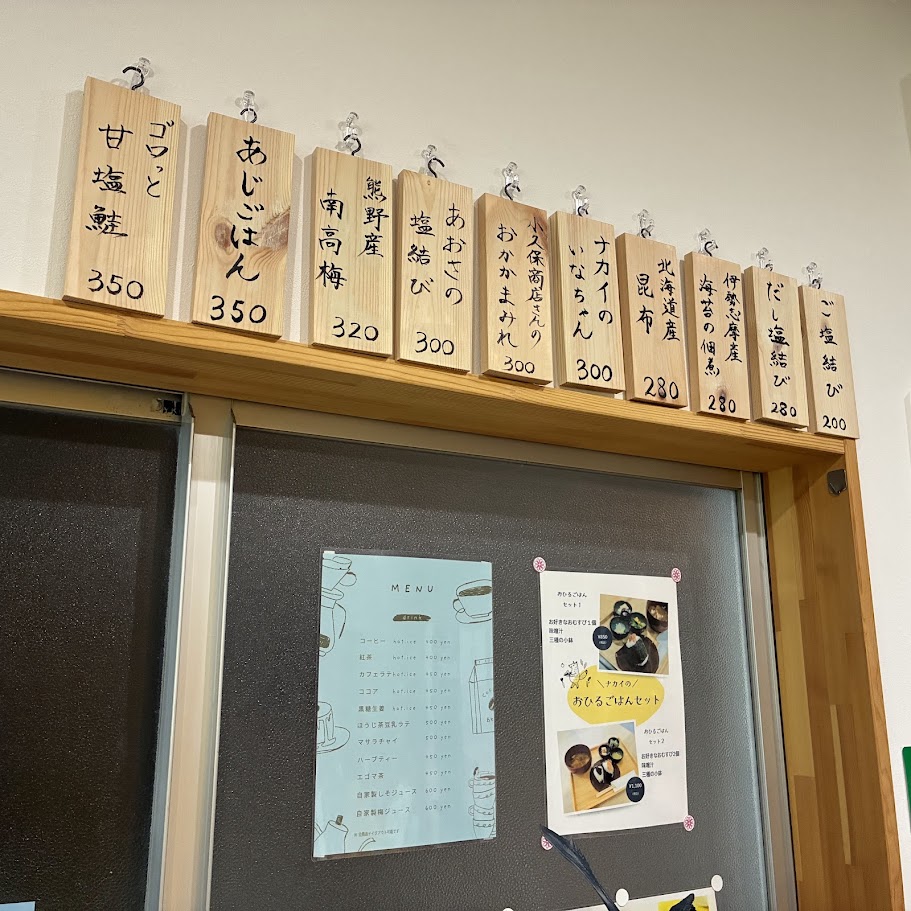 ゴロっと
甘塩鮭
350
あじごはん
350
熊野産
南高梅
320
あおさの
塩結び
300
小久保商店さんの
おかかまみれ
300
ナカイの
いなちゃん
300
北海道産
昆布
280
伊勢志摩産
海苔の佃煮
280
だし塩結び
280
ご塩結び
200
MENU
コーヒー hot.ice 400 yen
紅茶 hot.ice 400 yen
カフェラテ hot.ice 450 yen
ココア hot.ice 450 yen
黒糖生姜 hot.ice 450 yen
ほうじ茶豆乳ラテ 500 yen
マサラチャイ 500 yen
ハーブティー 450 yen
エゴマ茶 450 yen
自家製しそジュース 600 yen
自家製梅ジュース 600 yen
おひるごはん
セット1
お好きなおむすび1個
味噌汁
三種の小鉢
¥850
\ナカイの/
おひるごはんセット
おひるごはん
セット2
お好きなおむすび2個
味噌汁
三種の小鉢
¥1,100